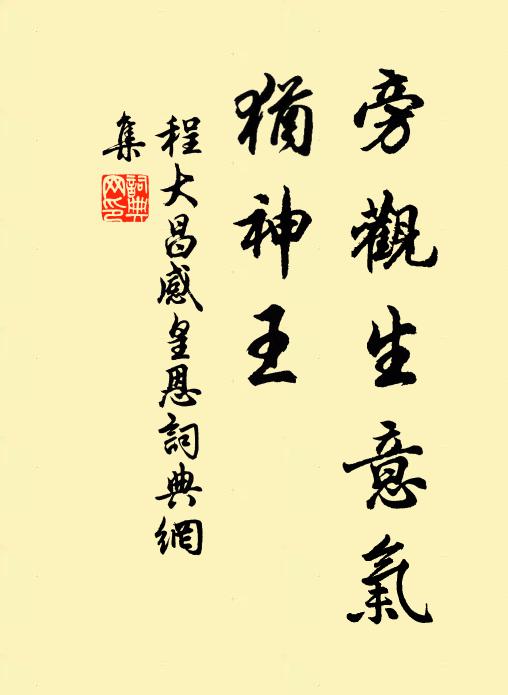 旁觀生意氣
猶神王
程大昌感皇恩詞典網
集
詞典
網印